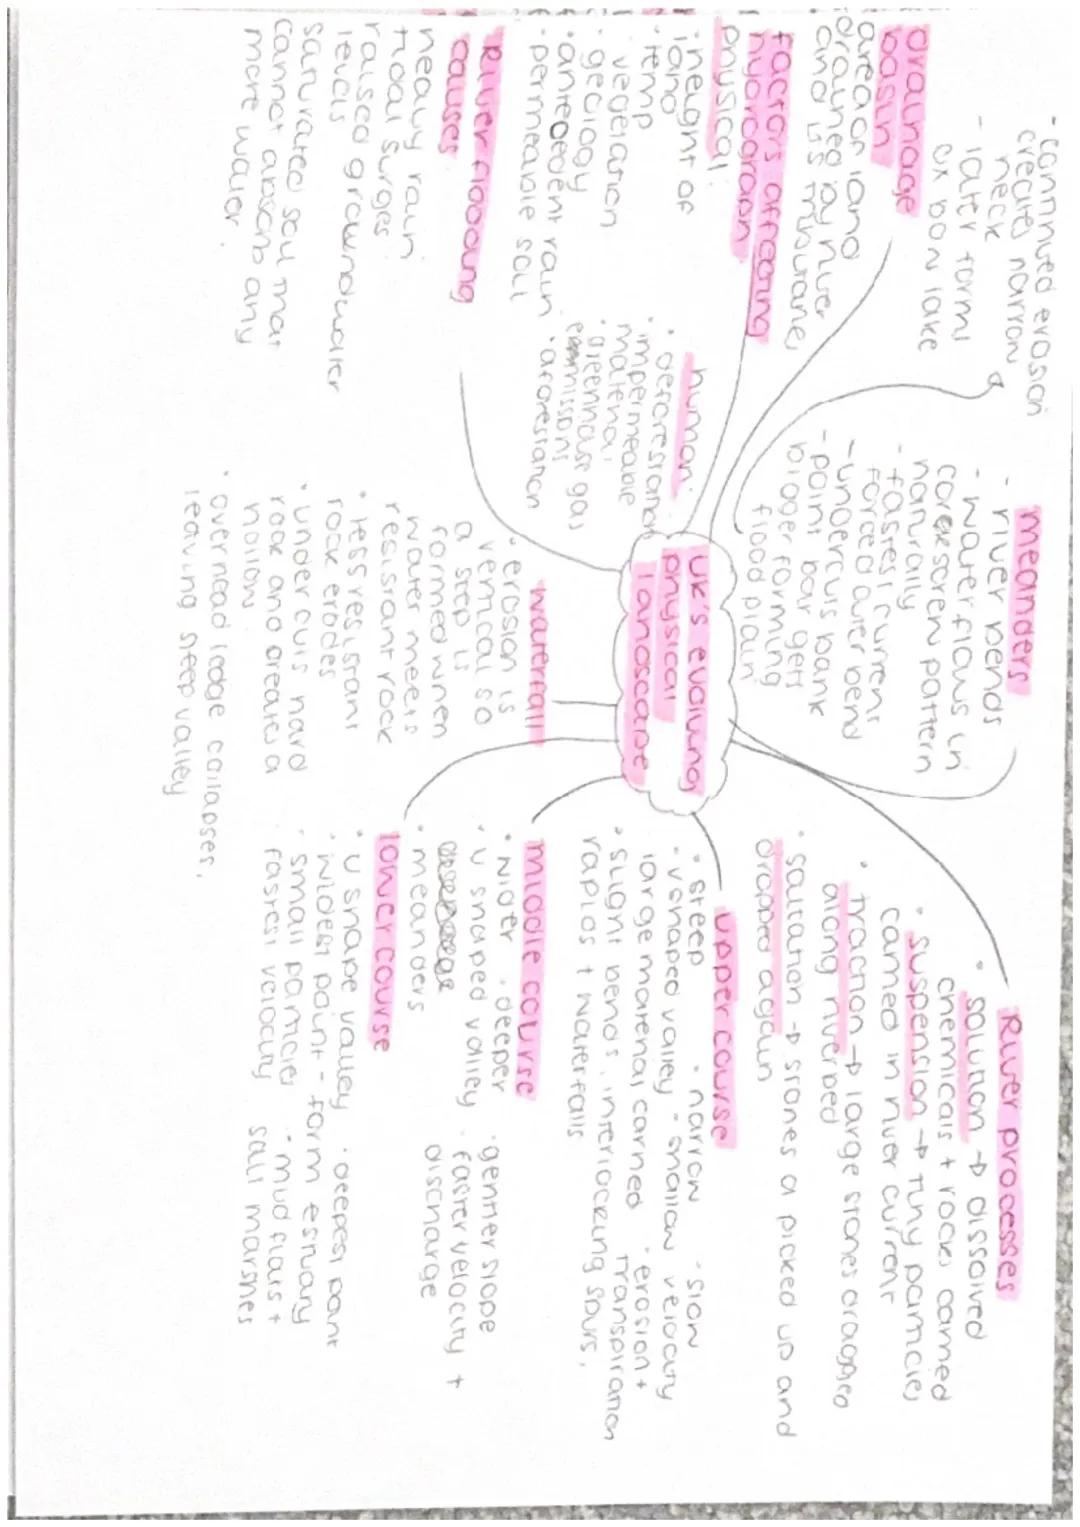 - continued erosion
creates narrow
neck
- later forms
ox bow lake
drainage
basin
area of land
drained by river
and its tributaries
factors affecting
hydrograph
physical:
· height of
land
· temp
· vegetation
· geology
· antecedent rain
· permeable soil
human:
· deforestation
· impermeable
material
· greenhouse gas
emmissons
· aforestation
River flooding
causes
heavy rain
tidal surges
raised groundwater
levels
saturated soil that
cannot absorb any
more water
meanders
- river bends
- water flows in
corkscrew pattern
naturally
- fastest current
forced outer bend
- undercuts bank
- point bar gets
bigger forming
flood plain
UK's evolving
physical
landscape
waterfall
· erosion is
vertical so
a step is
formed when
water meets
resistant rock
· less resistant
rock erodes
· under cuts hard
rock and creates a
hollow
· overhead ledge collapses,
leaving steep valley
River processes
· solution → dissolved
chemicals + rocks carried
· suspension → tiny particles
carried in river current
· traction → large stones dragged
along riverbed
· saltation → stones a picked up and
dropped again
upper course
· steep · narrow · slow
· v shaped valley · shallow velocity
large material carried · erosion +
transpiration
· slight bends, interlocking spurs,
rapids + waterfalls
middle course
· wider · deeper · gentler slope
· u shaped valley · faster velocity +
discharge
· meanders
lower course
· u shape valley · deepest part
· widest point - form estuary
· small particles · mud flats +
salt marshes
· fastest velocity